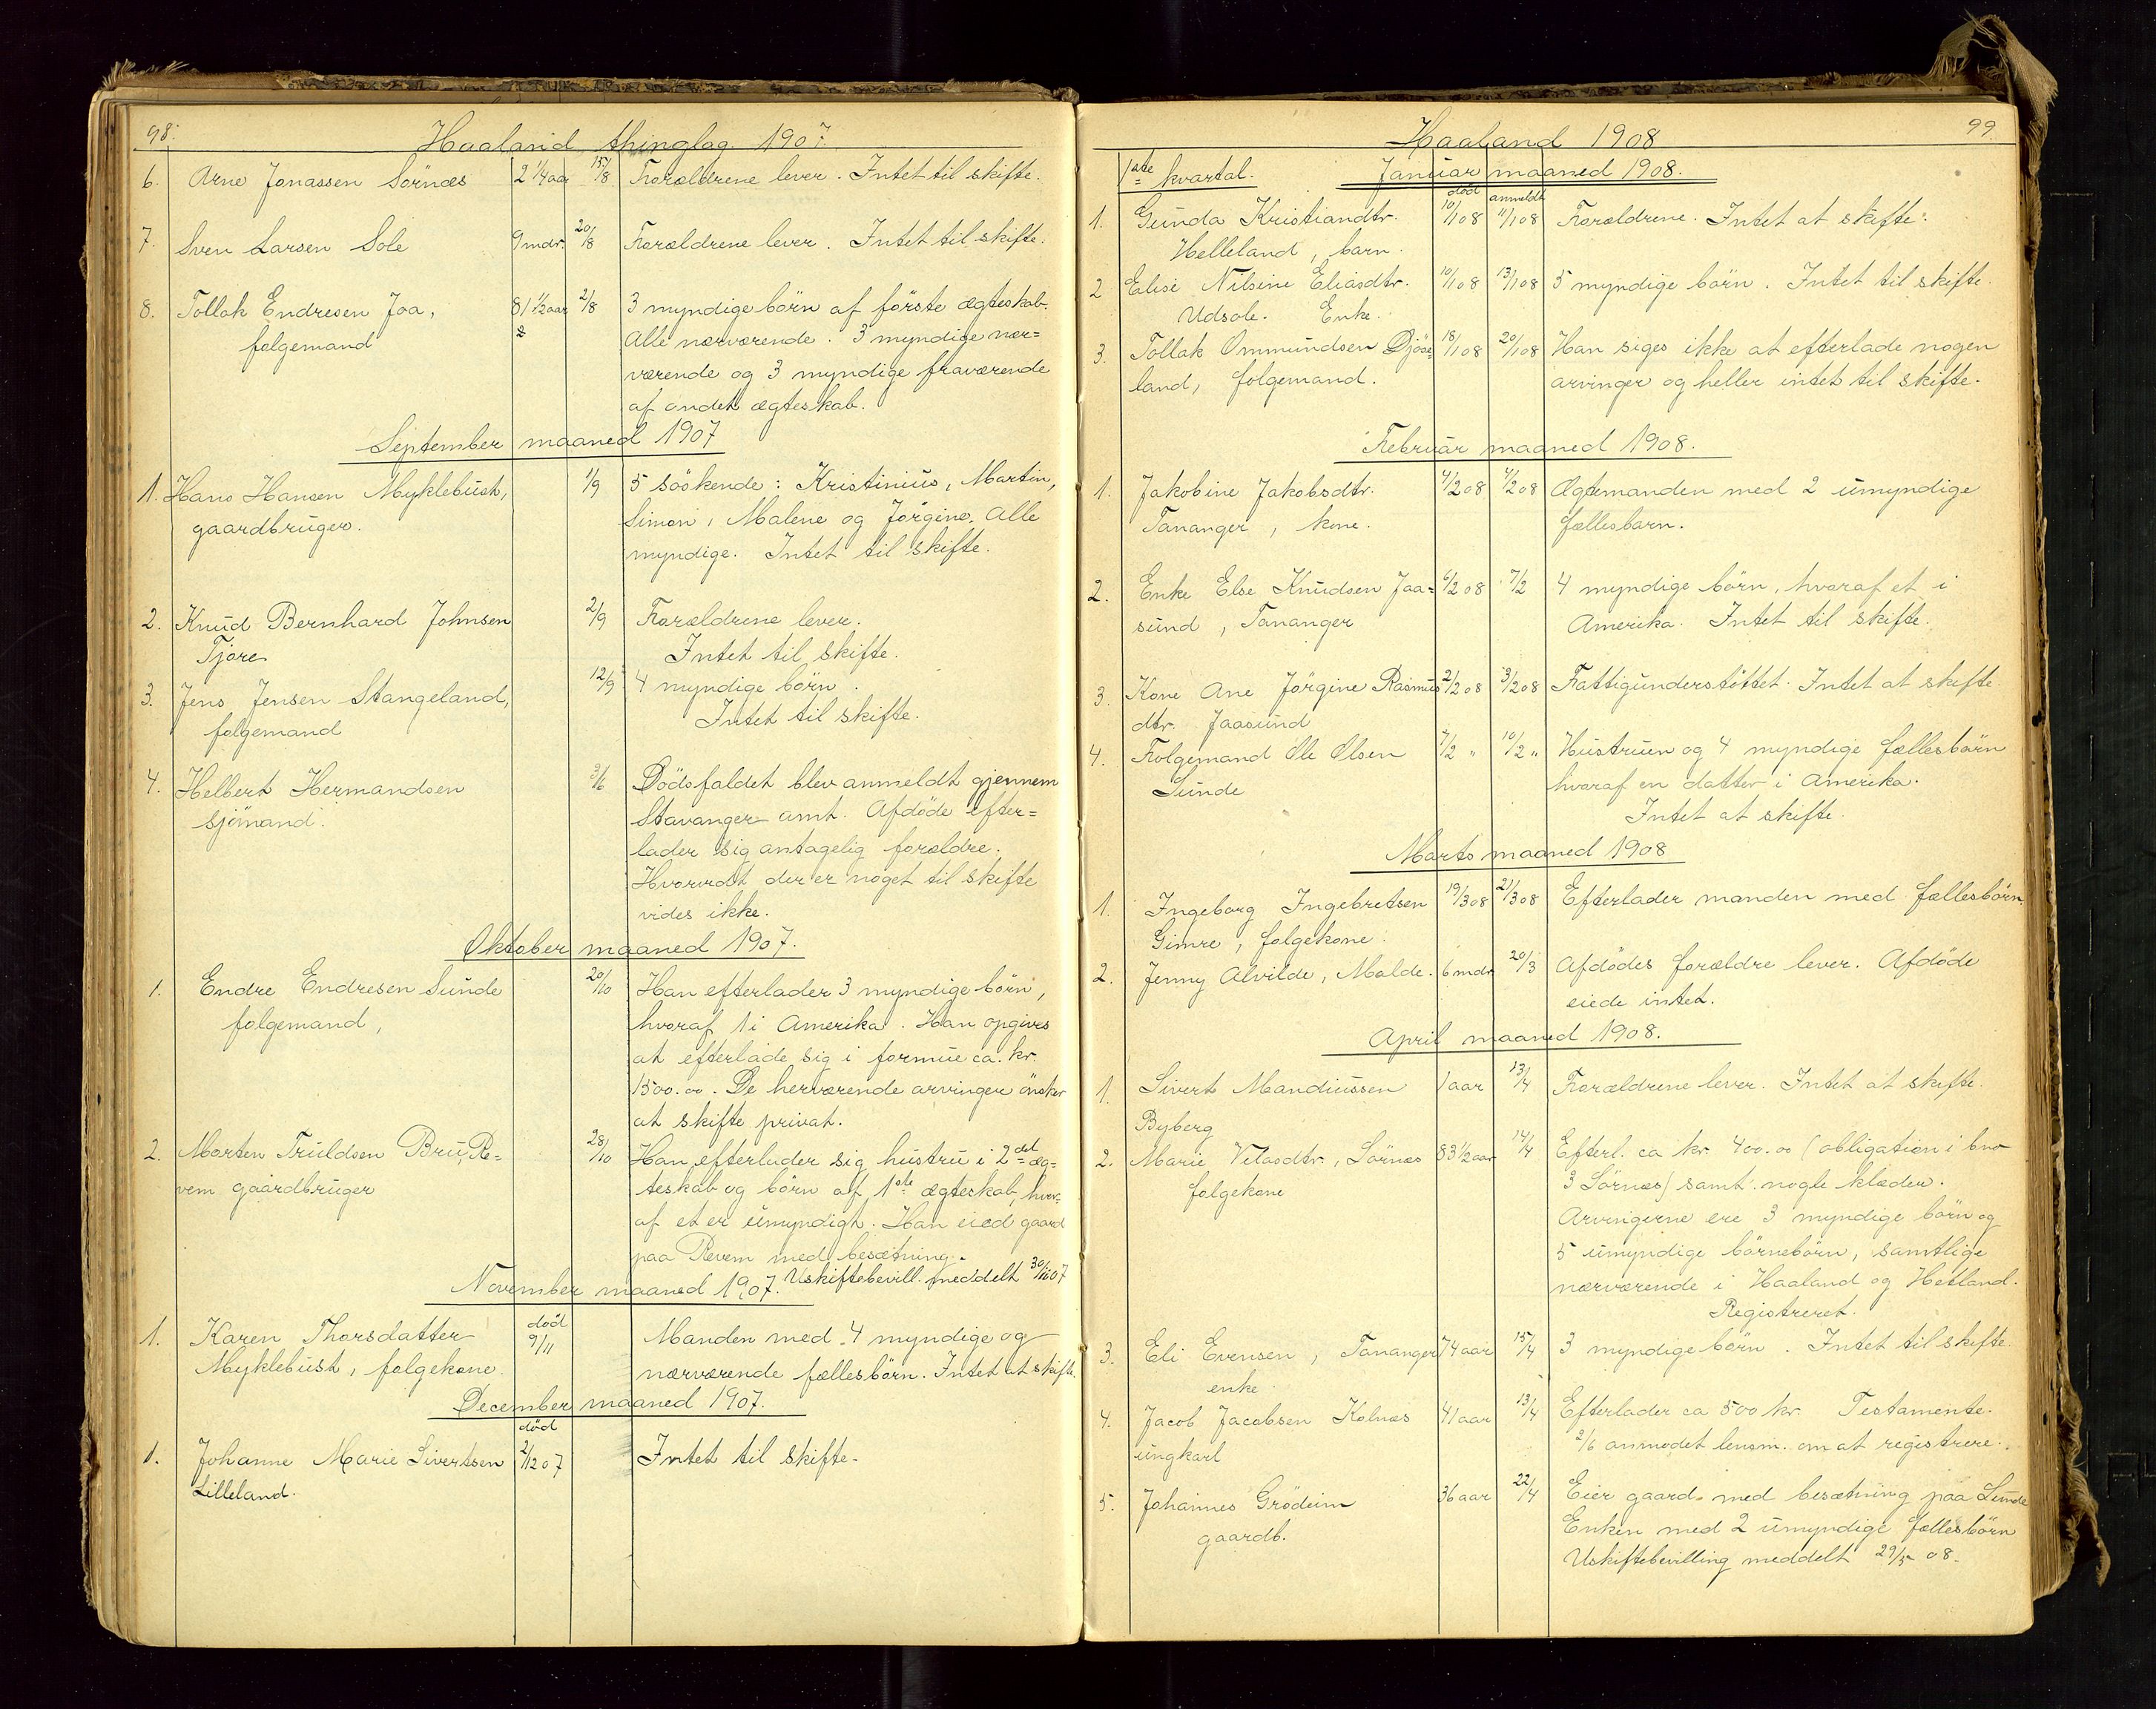 98.
Haaland thinglag 1907.
6. Arne Jonassen Sörnæs 2 1/4 aar 15/8 Forældrene lever. Intet til skifte.
7. Sven Larsen Sole 9 mdr. 20/8 Forældrene lever. Intet til skifte.
8. Tollak Endresen Joa, 81 1/2 aar 2/8 3 myndige börn af förste ægteskab.
folgemand Alle nærværende. 3 myndige nær=
værende og 3 myndige fraværende
af andet ægteskab.
September maaned 1907
1. Hans Hansen Myklebust, 1/9 5 söskende: Kristinius, Martin,
gaardbruger. Simon, Malene og Jörgine. Alle
myndige. Intet til skifte.
2. Knud Bernhard Johnsen 2/9 Forældrene lever.
Tjore Intet til skifte.
3. Jens Jensen Stangeland, 12/9 4 myndige börn.
folgemand Intet til skifte.
4. Helbert Hermandsen 3/6 Dödsfaldet blev anmeldt gjennem
sjömand. Stavanger amt. Afdöde efter=
lader sig antagelig forældre.
Hvorvidt der er noget til skifte
vides ikke.
Oktober maaned 1907.
1. Endre Endresen Sunde 20/10 Han efterlader 3 myndige börn,
folgemand, hvoraf 1 i Amerika. Han opgives
at efterlade sig i formue ca. kr.
1500.00. De herværende arvinger önsker
at skifte privat.
2. Morten Truldsen Bru, Re= 28/10 Han efterlader sig hustru i 2det æg=
vem gaardbruger teskab og börn af 1ste ægteskab, hvor=
af et er umyndigt. Han eied gaard
paa Revem med besætning.
Uskiftebevill. meddelt 30/11 07
November maaned 1907.
1. Karen Thorsdatter död 9/11 Manden med 4 myndige og
Myklebust, folgekone. nærværende fællesbörn. Intet at skifte.
December maaned 1907.
död
1. Johanne Marie Sivertsen 2/12 07 Intet til skifte.
Lilleland.
99.
Haaland 1908
1ste kvartal. Januar maaned 1908.
död anmeldt
1. Gunda Kristiandtr. 10/1 08 11/1 08 Forældrene. Intet at skifte.
Helleland, barn.
2. Elise Nilsine Eliasdtr. 10/1 08 13/1 08 5 myndige börn. Intet til skifte.
Udsole. Enke.
3. Tollak Ommundsen Djöse= 18/1 08 20/1 08 Han siges ikke at efterlade nogen
land, folgemand. arvinger og heller intet til skifte.
Februar maaned 1908.
1. Jakobine Jakobsdtr. 4/2 08 4/2 08 Ægtemanden med 2 umyndige
Tananger, kone. fællesbarn.
2. Enke Else Knudsen Jaa= 6/2 08 7/2 4 myndige börn, hvoraf et i
sund, Tananger Amerika. Intet til skifte.
3. Kone Ane Jörgine Rasmus 2/2 08 3/2 08 Fattigunderstöttet. Intet at skifte.
dtr. Jaasund
4. Folgemand Ole Olsen 7/2 " 10/2 " Hustruen og 4 myndige fællesbörn
Sunde hvoraf en datter i Amerika.
Intet at skifte.
Marts maaned 1908
1. Ingeborg Ingebretsen 19/3 08 21/3 08 Efterlader manden med fællesbörn.
Gimre, folgekone.
2. Jenny Alvilde, Malde. 6 mdr 20/3 Afdödes forældre lever. Afdöde
eiede intet.
April maaned 1908.
1. Sivert Mandiussen 1 aar 13/4 Forældrene lever. Intet at skifte.
Byberg
2. Marie Vilasdtr., Sörnæs 83 1/2 aar 14/4 Efterl. ca kr. 400.00 (obligation i bno
folgekone 3 Sörnæs) samt nogle klæder.
Arvingerne ere 3 myndige börn og
5 umyndige börnebörn, samtlige
nærværende i Haaland og Hetland.
Registreret.
3. Eli Evensen, Tananger 74 aar 15/4 3 myndige börn. Intet til skifte.
enke
4. Jacob Jacobsen Kolnæs 41 aar 13/4 Efterlader ca 500 kr. Testamente.
ungkarl 2/6 anmodet lensm. om at registrere.
5. Johannes Grödeim 36 aar 22/4 Eier gaard med besætning paa Sunde
gaardb. Enken med 2 umyndige fællesbörn
Uskiftebevilling meddelt 29/5 08.